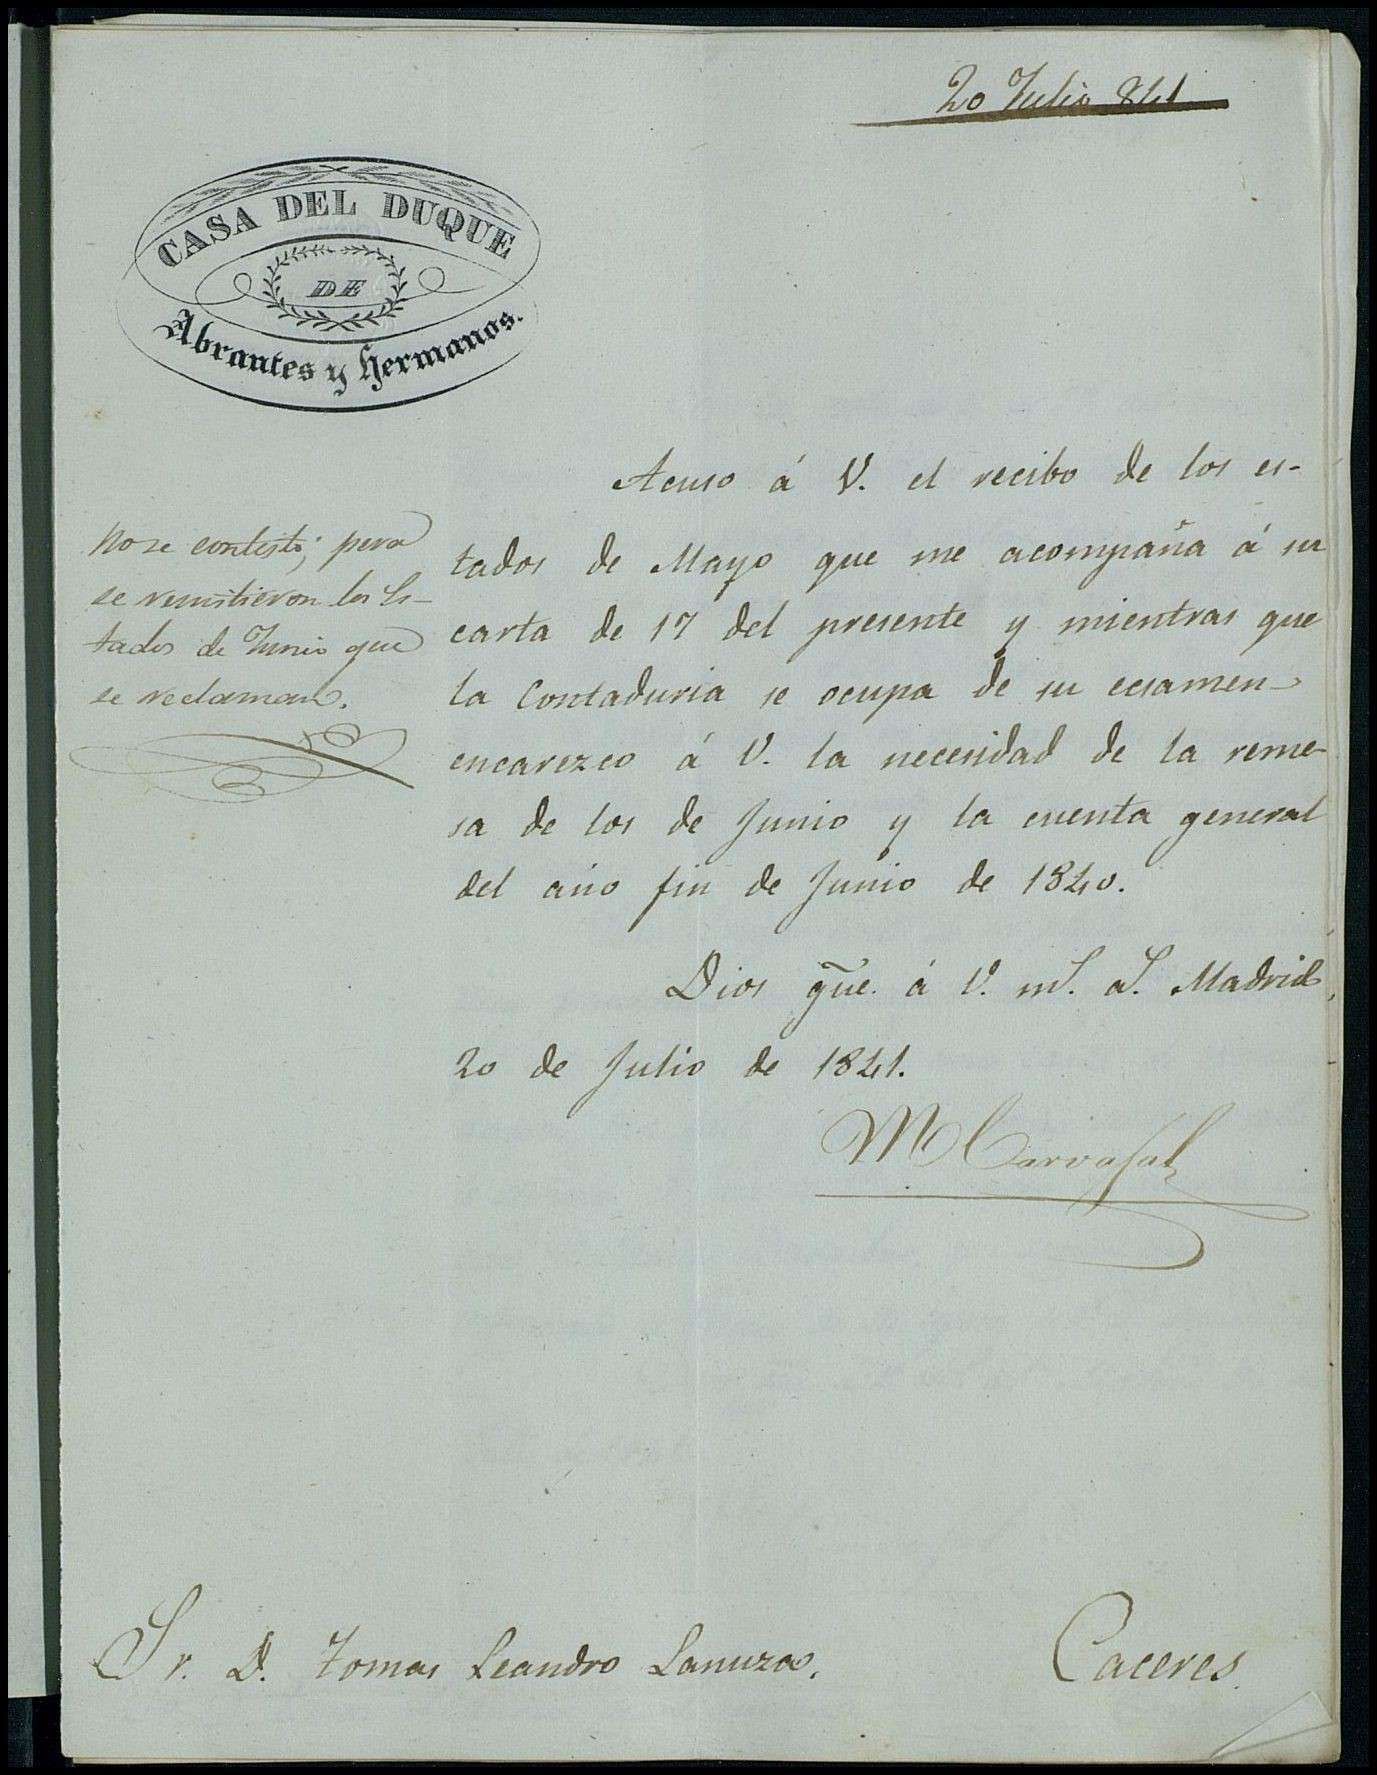 20 Julio 841
CASA DEL DUQUE
DE
Abrantes y hermanos.
Acuso á V. el recibo de los es-
tados de Mayo que me acompaña á su
carta de 17 del presente y mientras que
la Contaduria se ocupa de su ecsamen
encarezco á V. la necesidad de la reme-
sa de los de Junio y la cuenta general
del año fin de Junio de 1840.
Dios gũe. á V. ms. as. Madrid
20 de Julio de 1841.
M Carvajal
No se contestó; pero
se remitieron los Es-
tados de Junio que
se reclaman.
Sr. D. Tomas Leandro Lanuza.
Caceres.